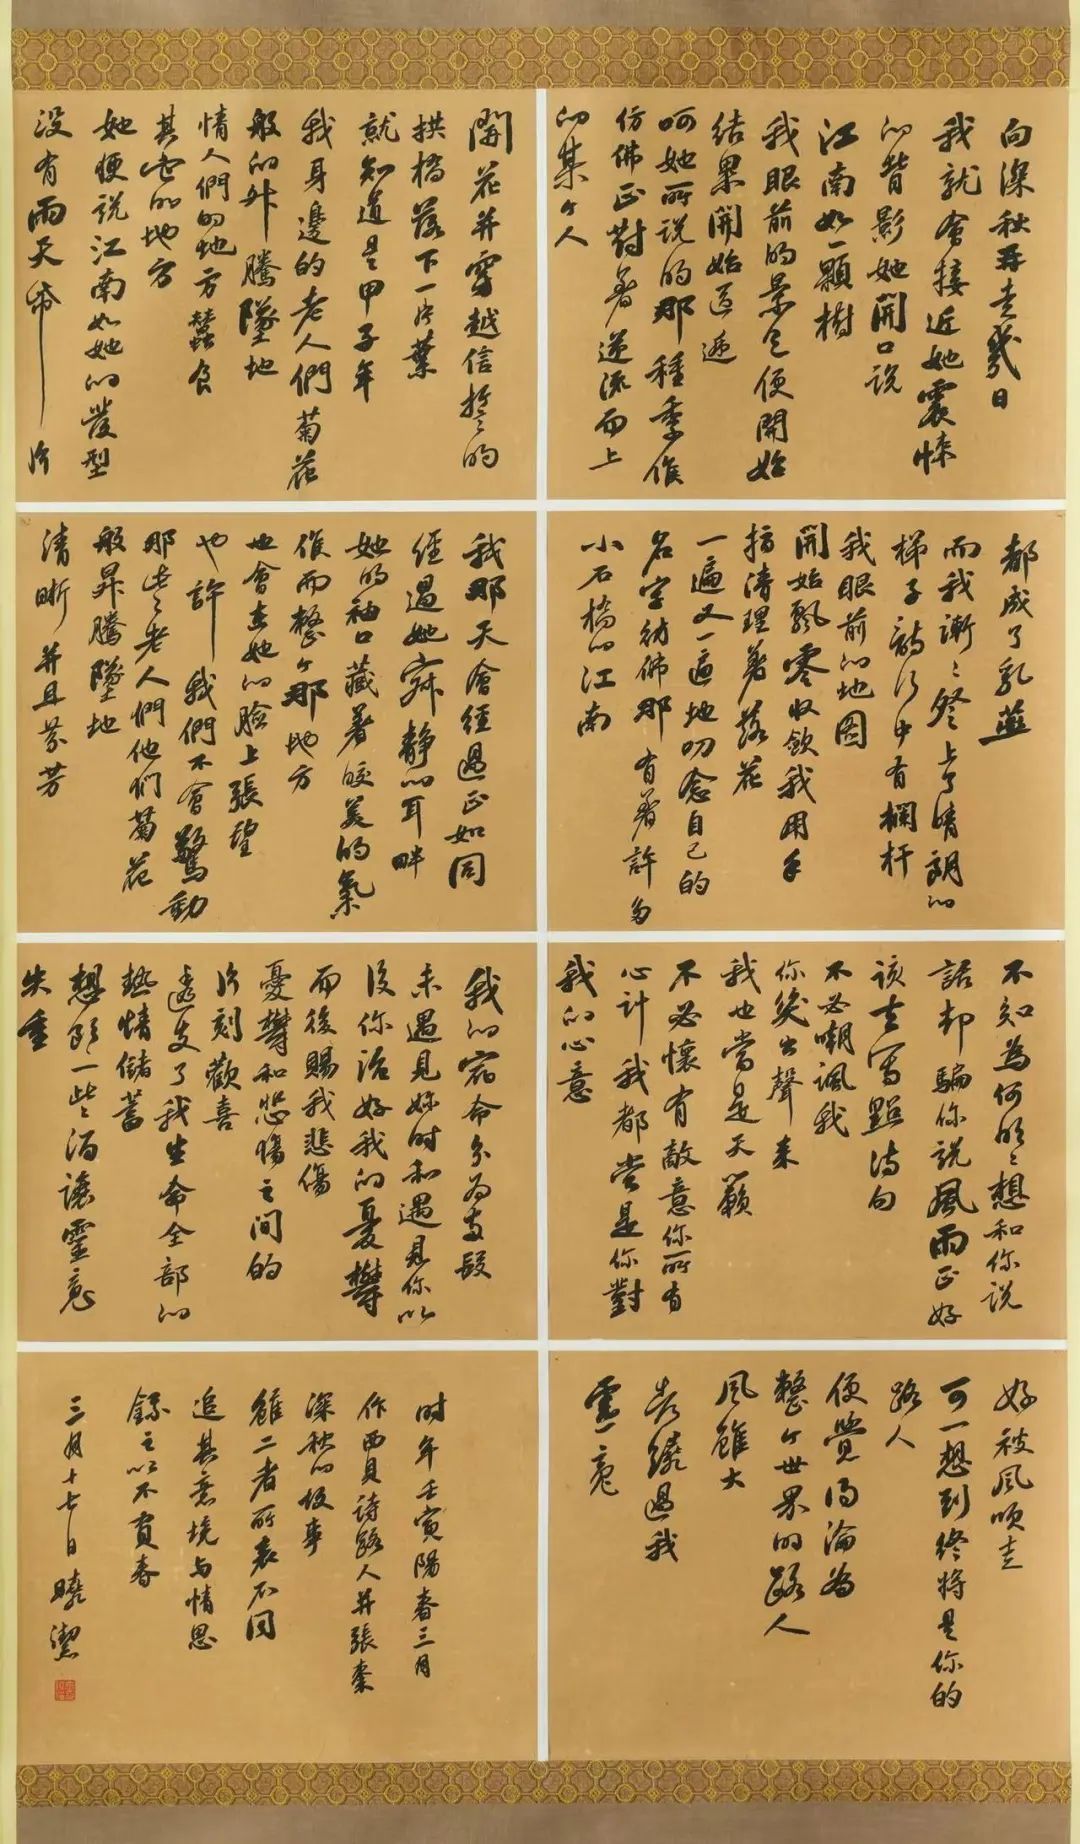 向深秋再走幾日
我就會接近她震悚
的背影她開口說
江南如一顆樹
我眼前的景色便開始
結果開始逗遞
呵她所說的那種季候
仿佛正對著逆流而上
的某個人
開花并穿越信誓的
拱橋落下一片葉
就知道是甲子年
我身邊的老人們菊花
般的昇騰墜地
情人們的地方蠶食
其它的地方
她便說江南如她的髮型
没有雨天紙片
都成了乳燕
而我漸漸登上了晴朗的
梯子詩行中有欄杆
我眼前的地圖
開始飄零收斂我用手
指清理著落花
一遍又一遍地叨念自己的
名字彷佛那有著許多
小石橋的江南
我那天會經過正如同
經過她寂靜的耳畔
她的袖口藏著皎美的氣
候而整個那地方
也會在她的臉上張望
也許我們不會驚動
那些老人們他們菊花
般昇騰墜地
清晰并且芬芳
不知為何明明想和你說
話却騙你說風雨正好
該去寫點诗句
不必嘲諷我
你笑出聲来
我也當是天籟
不必懷有敵意你所有
心計我都當是你對
我的心意
我的宿命分为兩段
未遇見妳时和遇見你以
後你治好我的憂鬱
而後賜我悲傷
憂鬱和悲傷之間的
片刻歡喜
透支了我生命全部的
熱情儲蓄
想飲一些酒讓靈魂
失重
好被風吹走
可一想到終將是你的
路人
便覺得淪為
整個世界的路人
風雖大
都繞過我
靈魂
时年壬寅陽春三月
作西貝詩路人并張棗
深秋的故事
雖二者所表不同
追其意境与情思
錄之以不負春
三月十七日曉潔